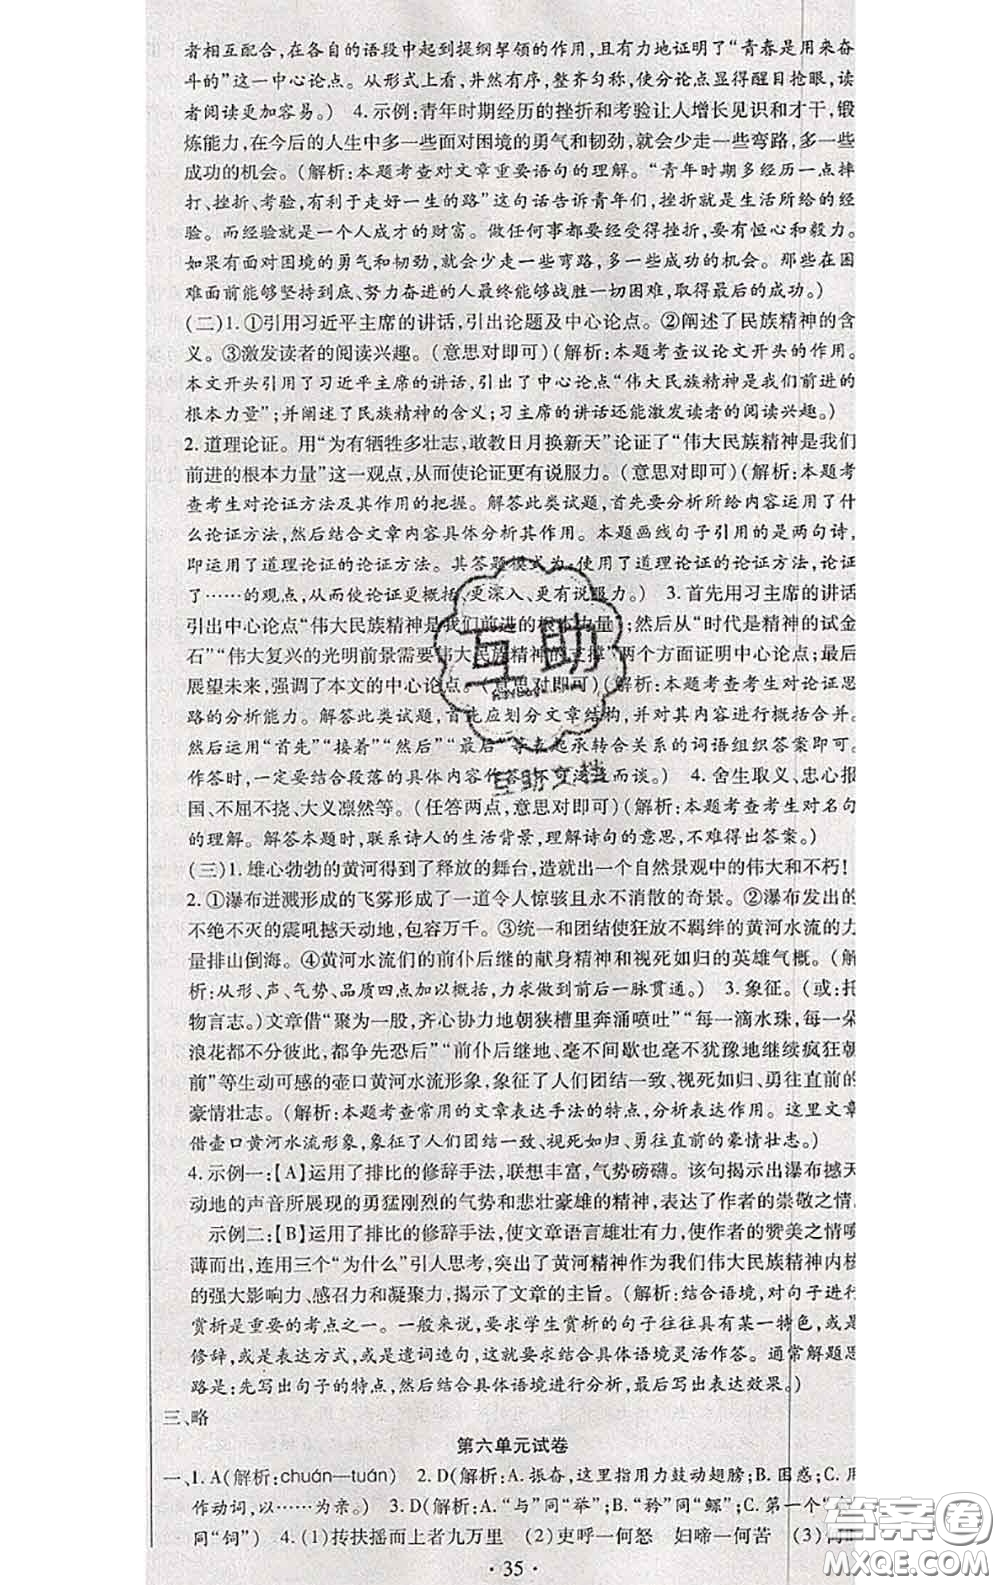 者相互配合,在各自的语段中起到提纲挈领的作用,且有力地证明了“青春是用来奋
斗的”这一中心论点。从形式上看,井然有序,整齐匀称,使分论点显得醒目抢眼,读
者阅读更加容易。) 4. 示例:青年时期经历的挫折和考验让人增长见识和才干,锻
炼能力,在今后的人生中多一些面对困境的勇气和韧劲,就会少走一些弯路,多一些
成功的机会。(解析:本题考查对文章重要语句的理解。“青年时期多经历一点摔
打、挫折、考验,有利于走好一生的路”这句话告诉青年们,挫折就是生活所给的经
验。而经验就是一个人成才的财富。做任何事都要经受得挫折,要有恒心和毅力。
如果有面对困境的勇气和韧劲,就能少走一些弯路,多一些成功的机会。那些在困
难面前能够坚持到底、努力奋进的人最终能够战胜一切困难,取得最后的成功。)
(二)1. ①引用习近平主席的讲话,引出论题及中心论点。②阐述了民族精神的含
义。③激发读者的阅读兴趣。(意思对即可)(解析:本题考查议论文开头的作用。
本文开头引用了习近平主席的讲话,引出了中心论点“伟大民族精神是我们前进的
根本力量”;并阐述了民族精神的含义;习主席的讲话还能激发读者的阅读兴趣。)
2. 道理论证。用“为有牺牲多壮志,敢教日月换新天”论证了“伟大民族精神是我们
前进的根本力量”这一观点,从而使论证更有说服力。(意思对即可)(解析:本题考
查考生对论证方法及其作用的把握。解答此类试题,首先要分析所给内容运用了什
么论证方法,然后结合文章内容具体分析其作用。本题画线句子引用的是两句诗,
即运用了道理论证的论证方法。其答题模式为:使用了道理论证的论证方法,论证
了……的观点,从而使论证更概括、更深入、更有说服力。) 3. 首先用习主席的讲话
引出中心论点“伟大民族精神是我们前进的根本力量”;然后从“时代是精神的试金
石”“伟大复兴的光明前景需要伟大民族精神的支撑”两个方面证明中心论点;最后
展望未来,强调了本文的中心论点。(意思对即可)(解析:本题考查考生对议论文论证思
路的分析能力。解答此类试题,首先应划分文章结构,并对其内容进行概括合并。
然后运用“首先”“接着”“然后”“最后”等表起承转合关系的词语组织答案即可。
作答时,一定要结合段落的具体内容作答,不可泛泛而谈。) 4. 舍生取义、忠心报
国、不屈不挠、大义凛然等。(任答两点,意思对即可)(解析:本题考查考生对名句
的理解。解答本题时,联系诗人的生活背景,理解诗句的意思,不难得出答案。)
(三)1. 雄心勃勃的黄河得到了释放的舞台,造就出一个自然景观中的伟大和不朽!
2. ①瀑布迸溅形成的飞雾形成了一道令人惊骇且永不消散的奇景。②瀑布发出的
不绝不灭的震吼撼天动地,包容万千。③统一和团结使狂放不羁绊的黄河水流的力
量排山倒海。④黄河水流们的前仆后继的献身精神和视死如归的英雄气概。(解
析:从形、声、气势、品质四点加以概括,力求做到前后一脉贯通。) 3. 象征。(或:托
物言志。)文章借“聚为一股,齐心协力地朝狭槽里奔涌喷吐”“每一滴水珠,每一朵
浪花都不分彼此,都争先恐后”“前仆后继地、毫不间歇也毫不犹豫地继续疯狂朝
前”等生动可感的壶口黄河水流形象,象征了人们团结一致、视死如归、勇往直前的
豪情壮志。(解析:本题考查常用的文章表达手法的特点,分析表达作用。这里文章
借壶口黄河水流形象,象征了人们团结一致、视死如归、勇往直前的豪情壮志。)
4. 示例一:【A】运用了排比的修辞手法,联想丰富,气势磅礴。该句揭示出瀑布撼天
动地的声音所展现的勇猛刚烈的气势和悲壮豪雄的精神,表达了作者的崇敬之情。
示例二:【B】运用了排比的修辞手法,使文章语言雄壮有力,使作者的赞美之情喷
薄而出,连用三个“为什么”引人思考,突出了黄河精神作为我们伟大民族精神内核
的强大影响力、感召力和凝聚力,揭示了文章的主旨。(解析:结合语境,对句子进行
赏析是重要的考点之一。一般来说,要求学生赏析的句子往往具有某一特色,或是
修辞,或是表达方式,或是遣词造句,这就要求结合具体语境灵活作答。通常解题思
路是:先写出句子的特点,然后结合具体语境进行分析,最后写出表达效果。)
三、略
第六单元试卷
一、1. A(解析:chuán—tuán) 2. D(解析:A. 振奋,这里指用力鼓动翅膀;B. 困惑;C. 用
作动词,以……为亲。) 3. D(解析:A. “与”同“举”;B. “矜”同“鳏”;C. 第一个“
同“饲”) 4. (1)抟扶摇而上者九万里 (2)吏呼一何怒 妇啼一何苦 (3)
· 35 ·
互助
互助文档
答案圈
MXQE.COM